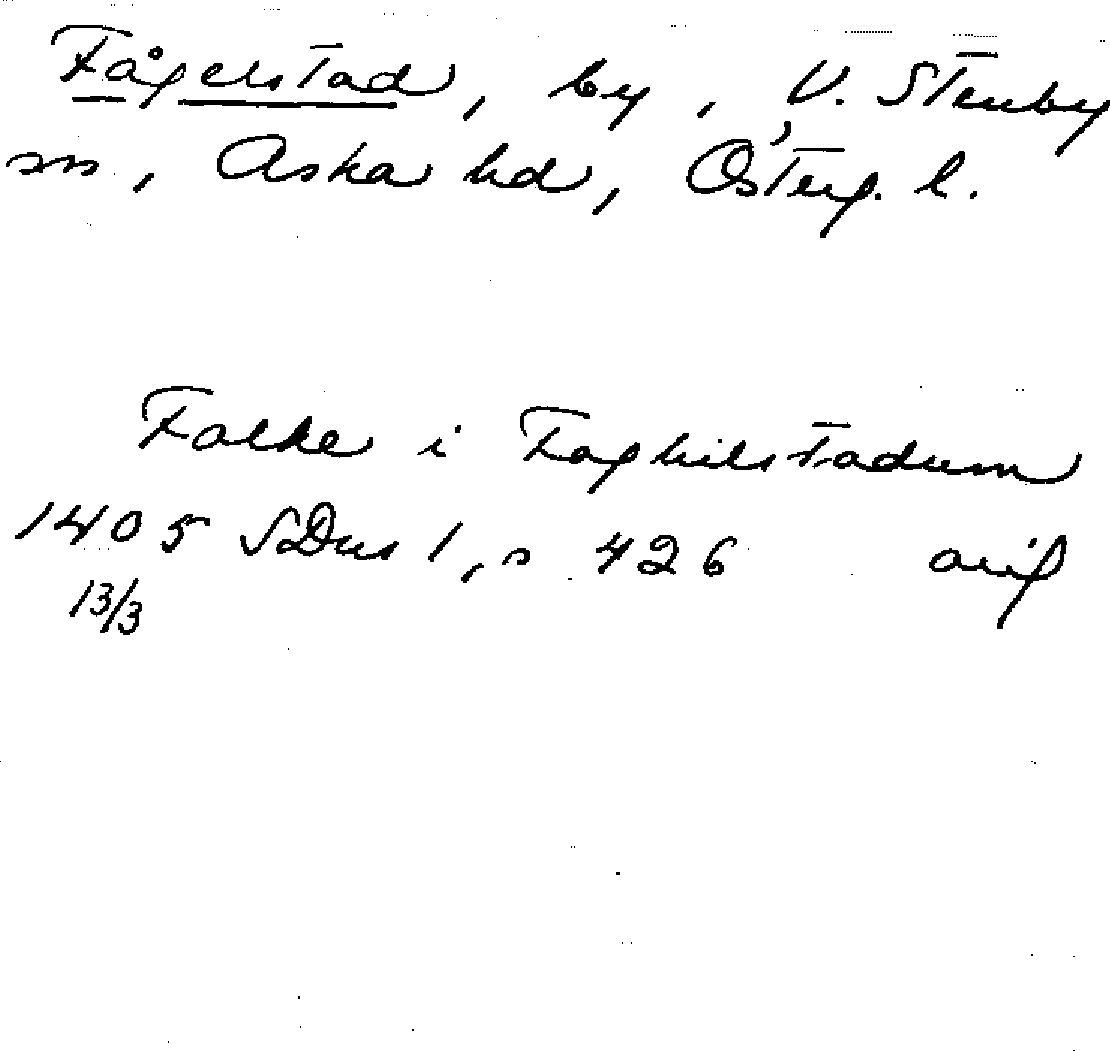 Fågelstad, by, V. Stenby
sn, Aska hd, Österg. l.
Falke i Foghilstadum
1405 SDns 1, s 426 orig
13/3